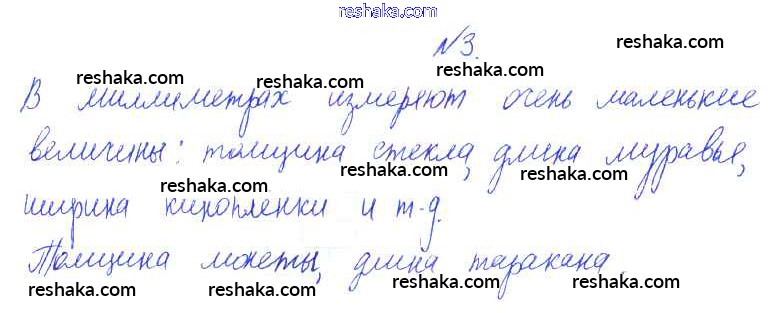 reshaka.com
№3.
reshaka.com
reshaka.com reshaka.com reshaka.com
В миллиметрах измеряют очень маленькие
reshaka.com reshaka.com
величины: толщина стекла, длина муравья,
reshaka.com reshaka.com
ширина кинопленки и т.д.
reshaka.com reshaka.com
Толщина монеты, длина таракана.
reshaka.com reshaka.com reshaka.com reshaka.com